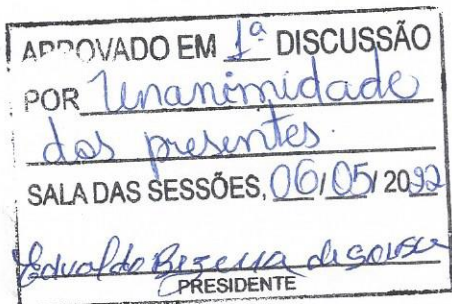 APROVADO EM 1ª DISCUSSÃO
POR Unanimidade
dos presentes.
SALA DAS SESSÕES, 06/05/2022
Edvaldo Bezerra de Sousa
PRESIDENTE